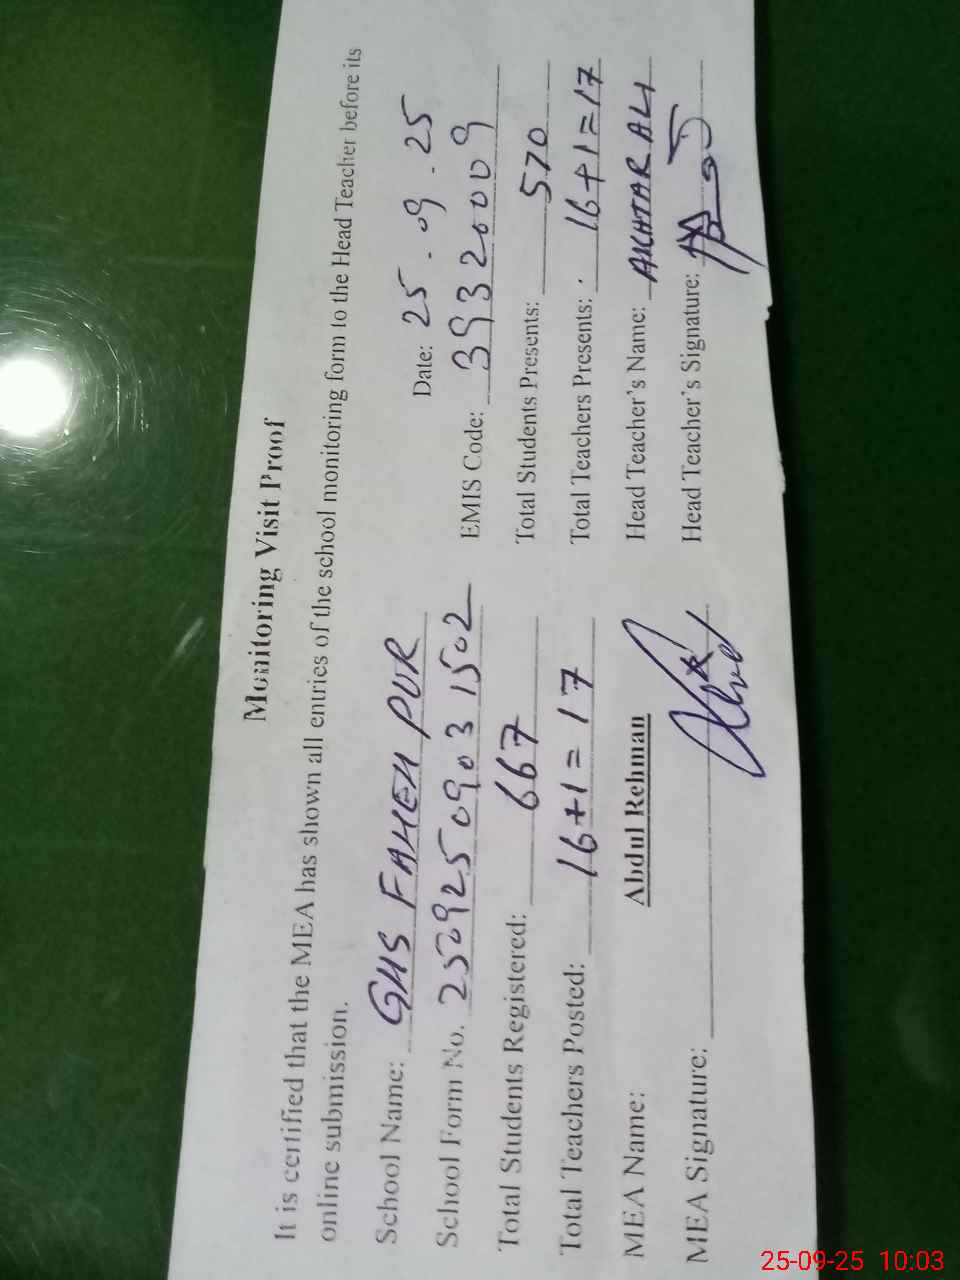 Monitoring Visit Proof
It is certified that the MEA has shown all entries of the school monitoring form to the Head Teacher before its
online submission.
Date: 25.09.25
School Name: GHS FAHEM PUR
EMIS Code: 39320009
School Form No. 25092509031502
Total Students Registered: 667
Total Students Presents: 570
Total Teachers Posted: 16+1=17
Total Teachers Presents: 16+1=17
MEA Name: Abdul Rehman
Head Teacher's Name: AKHTAR ALI
MEA Signature:
Head Teacher's Signature:
25-09-25 10:03